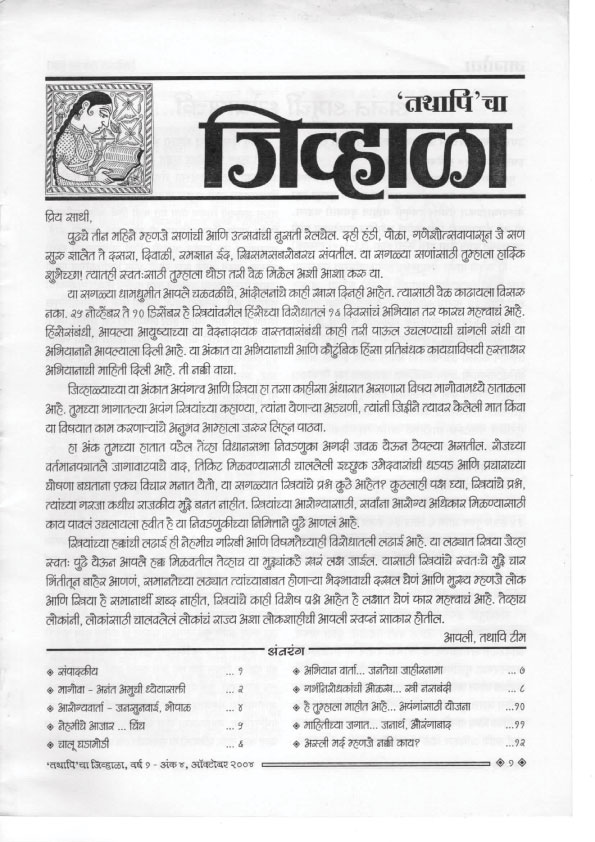 ‘तथापि’चा
जिव्हाळा
प्रिय साथी,
पुढचे तीन महिने म्हणजे सणांची आणि उत्सवांची नुसती रेलचेल. दही हंडी, पोळा, गणेशोत्सवापासून जे सण
सुरु झालेत ते दसरा, दिवाळी, रमझान ईद, ख्रिसमसबरोबरच संपतील. या सगळ्या सणांसाठी तुम्हाला हार्दिक
शुभेच्छा! त्यातही स्वतःसाठी तुम्हाला थोडा तरी वेळ मिळेल अशी आशा करु या.
या सगळ्या धामधुमीत आपले चळवळीचे, आंदोलनांचे काही खास दिनही आहेत. त्यासाठी वेळ काढायला विसरु
नका. २५ नोव्हेंबर ते १० डिसेंबर हे स्त्रियांवरील हिंसेच्या विरोधातलं १६ दिवसांचं अभियान तर फारच महत्त्वाचं आहे.
हिंसेसंबंधी, आपल्या आयुष्याच्या या वेदनादायक वास्तवासंबंधी काही तरी पाऊल उचलण्याची चांगली संधी या
अभियानाने आपल्याला दिली आहे. या अंकात या अभियानाची आणि कौटुंबिक हिंसा प्रतिबंधक कायद्याविषयी हस्ताक्षर
अभियानाची माहिती दिली आहे. ती नक्की वाचा.
जिव्हाळ्याच्या या अंकात अपंगत्व आणि स्त्रिया हा तसा काहीसा अंधारात असणारा विषय मागोवामध्ये हाताळला
आहे. तुमच्या भागातल्या अपंग स्त्रियांच्या कहाण्या, त्यांना येणाऱ्या अडचणी, त्यांनी जिद्दीने त्यावर केलेली मात किंवा
या विषयात काम करणाऱ्यांचे अनुभव आम्हाला जरुर लिहून पाठवा.
हा अंक तुमच्या हातात पडेल तेंव्हा विधानसभा निवडणुका अगदी जवळ येऊन ठेपल्या असतील. रोजच्या
वर्तमानपत्रातले जागावाटपाचे वाद, तिकिट मिळवण्यासाठी चाललेली इच्छुक उमेदवारांची धडपड आणि प्रचाराच्या
घोषणा बघताना एकच विचार मनात येतो, या सगळ्यात स्त्रियांचे प्रश्न कुठे आहेत? कुठलाही पक्ष घ्या, स्त्रियांचे प्रश्न,
त्यांच्या गरजा कधीच राजकीय मुद्दे बनत नाहीत. स्त्रियांच्या आरोग्यासाठी, सर्वांना आरोग्य अधिकार मिळण्यासाठी
काय पावलं उचलायला हवीत हे या निवडणुकीच्या निमित्ताने पुढे आणलं आहे.
स्त्रियांच्या हक्कांची लढाई ही नेहमीच गरिबी आणि विषमतेच्याही विरोधातली लढाई आहे. या लढ्यात स्त्रिया जेव्हा
स्वतः पुढे येऊन आपले हक्क मिळवतील तेव्हाच या मुद्द्यांकडे खरं लक्ष जाईल. यासाठी स्त्रियांचे स्वतःचे मुद्दे चार
भिंतीतून बाहेर आणणं, समानतेच्या लढ्यात त्यांच्याबाबत होणाऱ्या भेदभावाची दखल घेणं आणि मुख्य म्हणजे लोक
आणि स्त्रिया हे समानार्थी शब्द नाहीत, स्त्रियांचे काही विशेष प्रश्न आहेत हे लक्षात घेणं फार महत्त्वाचं आहे. तेव्हाच
लोकांनी, लोकांसाठी चालवलेलं लोकांचं राज्य अशा लोकशाहीची आपली स्वप्नं साकार होतील.
आपली, तथापि टीम
अंतरंग
संपादकीय ... १
मागोवा - अनंत अमुची ध्येयासक्ती ... २
आरोग्यवार्ता - जनसुनवाई, भोपाळ ... ४
नेहमीचे आजार ... चिंच ... ५
चालू घडामोडी ... ६
अभियान वार्ता... जनतेचा जाहीरनामा ... ७
गर्भनिरोधकांची ओळख... स्त्री नसबंदी ... ८
हे तुम्हाला माहीत आहे... अपंगांसाठी योजना ...१०
माहितीच्या जगात... जनार्थ, औरंगाबाद ...११
अस्ली मर्द म्हणजे नक्की काय? ...१२
‘तथापि’चा जिव्हाळा, वर्ष १ - अंक ४, ऑक्टोबर २००४
१